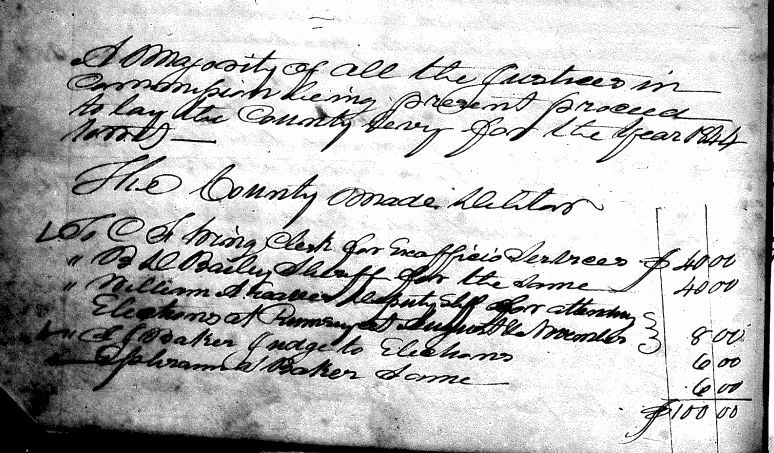 A Majority of all the Justices in
Commission being present proceed
to lay the County Levy for the Year 1844
The County made Debtor
To C F Wing Clerk for Exofficio Services $ 40 00
" B D Bailey Sheriff for the same 40 00
" William A Deputy Shff for attending
Elections at Rumsey at August & November 8 00
" J Baker Judge to Elections 6 00
" Ephraim Baker Same 6 00
$100 00